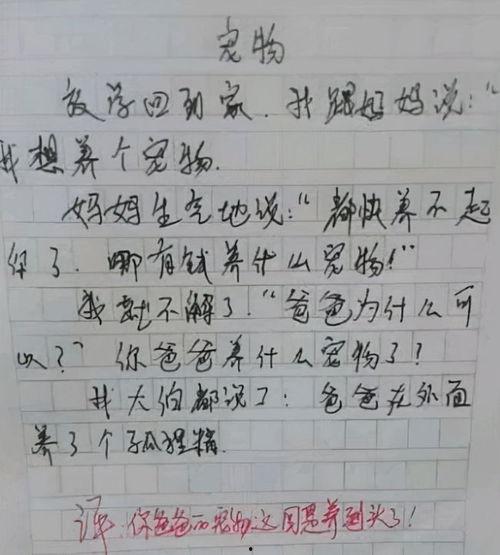 宠物
放学回到家.我跟妈妈说:"
我想养个宠物.
妈妈生气地说:"都快养不起
你了.哪有钱养什么宠物!"
我就不解了."爸爸为什么可
以?"你爸爸养什么宠物了?
我大伯都说了:爸爸在外面
养了个狐狸精.
评:你爸爸的宠物这回是养到头了!